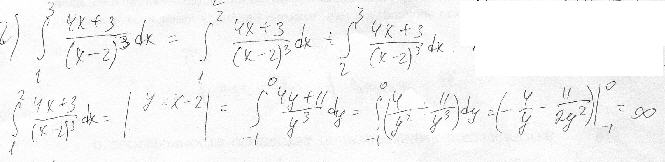 2) ∫₁³ (4x+3)/(x-2)³ dx = ∫₁² (4x+3)/(x-2)³ dx + ∫₂³ (4x+3)/(x-2)³ dx .
∫₁² (4x+3)/(x-2)³ dx = | y = x-2 | = ∫₋₁⁰ (4y+11)/y³ dy = ∫₋₁⁰ (4/y² + 11/y³) dy = (-4/y - 11/2y²)|₋₁⁰ = ∞